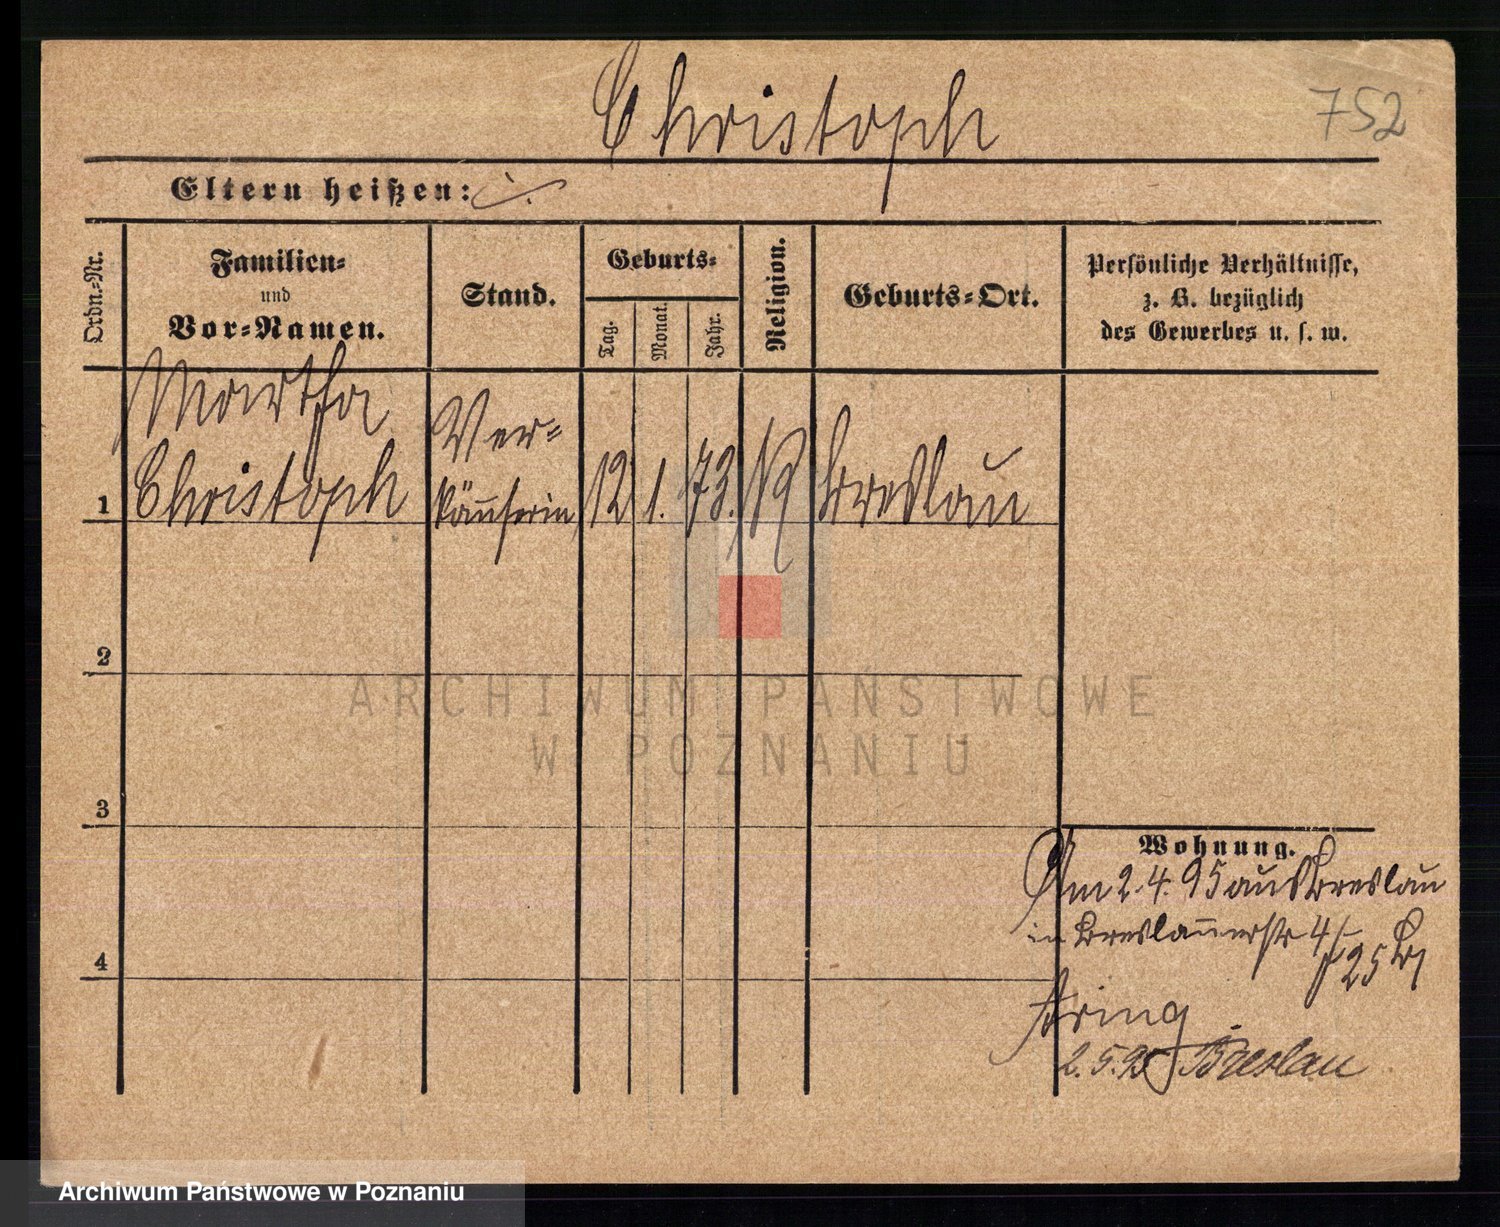 Christoph
752
Eltern heißen:
Ordn.-Nr.
Familien-
und
Vor-Namen.
Stand.
Geburts-
Tag.
Monat.
Jahr.
Religion.
Geburts-Ort.
Persönliche Verhältnisse,
z. B. bezüglich
des Gewerbes u. s. w.
Martha
Christoph
Ver-
käuferin
1
12
1.
73.
Breslau
2
3
4
Wohnung.
Am 2.4.95 aus Breslau
in Breslauerstr 4/
25
2.5.95 Breslau
ARCHIWUM PAŃSTWOWE
W POZNANIU
Archiwum Państwowe w Poznaniu